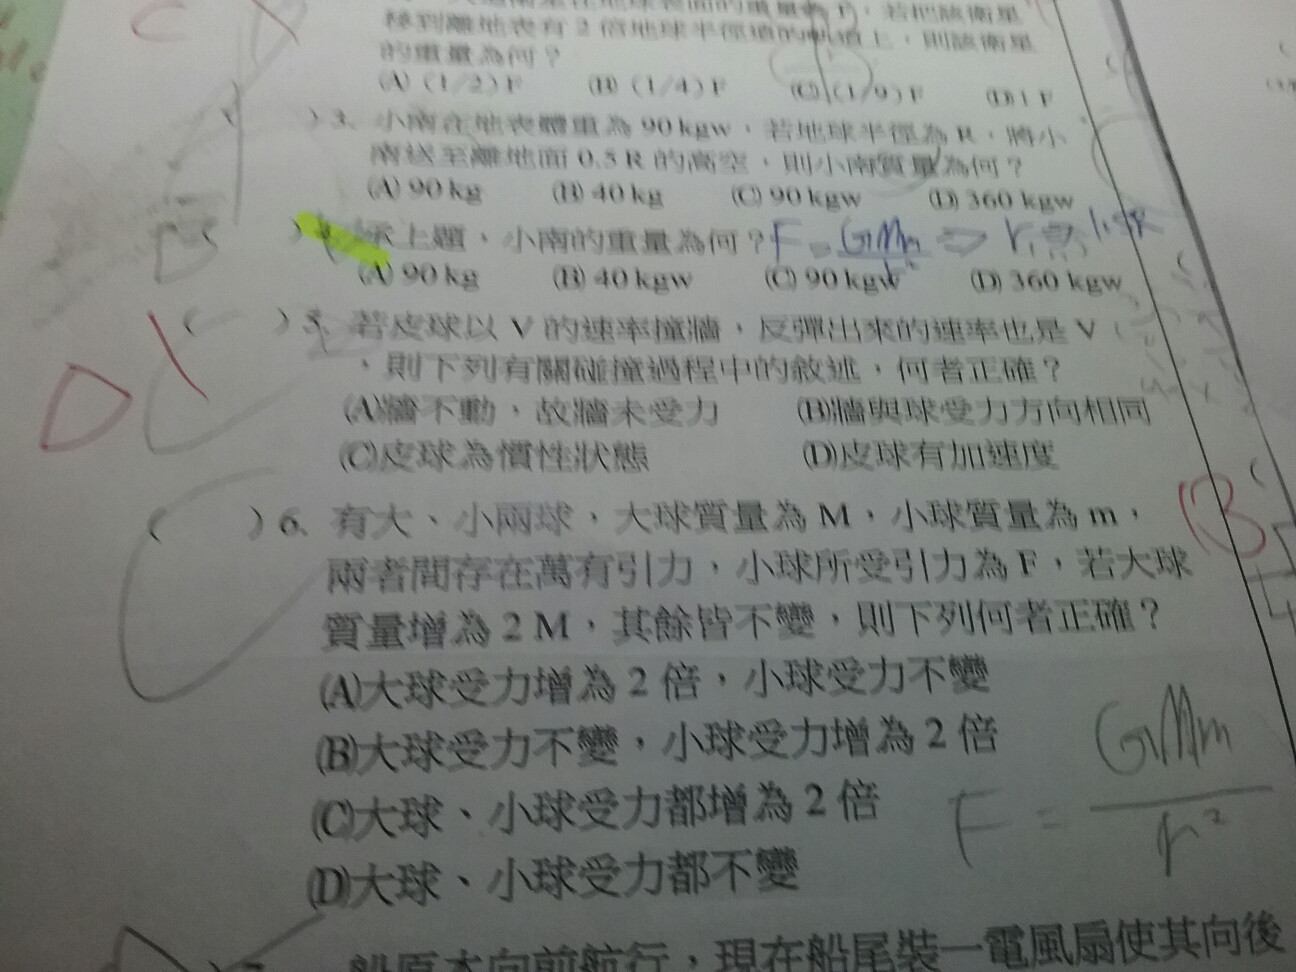 移到離地表有 2 倍地球半徑遠的軌道上，則該衛星
的重量為何？
(A) (1/2) F (B) (1/4) F (C) (1/9) F (D) 1 F
) 3、小南在地表體重為 90 kgw，若地球半徑為 R，將小
南送至離地面 0.5 R 的高空，則小南質量為何？
(A) 90 kg (B) 40 kg (C) 90 kgw (D) 360 kgw
承上題，小南的重量為何？ F = GMm
(A) 90 kg (B) 40 kgw (C) 90 kgw (D) 360 kgw
( ) 5、若皮球以 V 的速率撞牆，反彈出來的速率也是 V
，則下列有關碰撞過程中的敘述，何者正確？
(A)牆不動，故牆未受力 (B)牆與球受力方向相同
(C)皮球為慣性狀態 (D)皮球有加速度
D
C
( ) 6、有大、小兩球，大球質量為 M，小球質量為 m，
兩者間存在萬有引力，小球所受引力為 F，若大球
質量增為 2 M，其餘皆不變，則下列何者正確？
(A)大球受力增為 2 倍，小球受力不變
(B)大球受力不變，小球受力增為 2 倍
(C)大球、小球受力都增為 2 倍
(D)大球、小球受力都不變
C
F = GMm
r²
船原本向前航行，現在船尾裝一電風扇使其向後